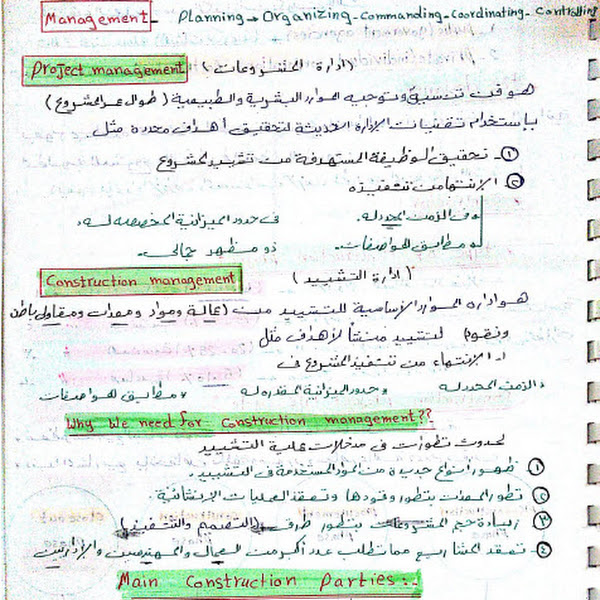 Management - Planning → Organizing - Commanding - Coordinating - Controlling
Project management (ادارة المشروعات)
هو فن تنسيق وتوجيه الموارد البشرية والطبيعية (طوال عمر المشروع)
بإستخدام تقنيات الإدارة الحديثة لتحقيق أهداف محدده مثل.
١- تحقيق الوظيفة المستهدفة من تشييد المشروع
٢ الانتهاء من تنفيذه
في الزمن المحدد له. في حدود الميزانية المخصصه له.
مطابق للمواصفات. ذو مظهر جمالى.
Construction management (ادارة التشييد)
هو اداره الموارد الأساسية للتشييد من (عمالة ومواد ومعدات ومقاولى باطن
ونقود) لتشييد منشأ لأهداف مثل
١. الانتهاء من تنفيذ المشروع فى
الزمن المحدد له حدود الميزانية المقدره له مطابق للمواصفات
Why We need for construction management??
لحدوث تطورات فى مدخلات عملية التشييد
١ ظهور أنواع جديدة من المواد المستخدمة فى التشييد.
٢ تطور المعدات بتطور وتعقد العمليات الإنشائية.
٣ زيادة حجم المشروعات بتطور طرق (التصميم والتنفيذ)
٤- تعقد المشاريع مما تطلب عدد أكبر من العمال والمهندسين والإداريين
Main Construction Parties:-